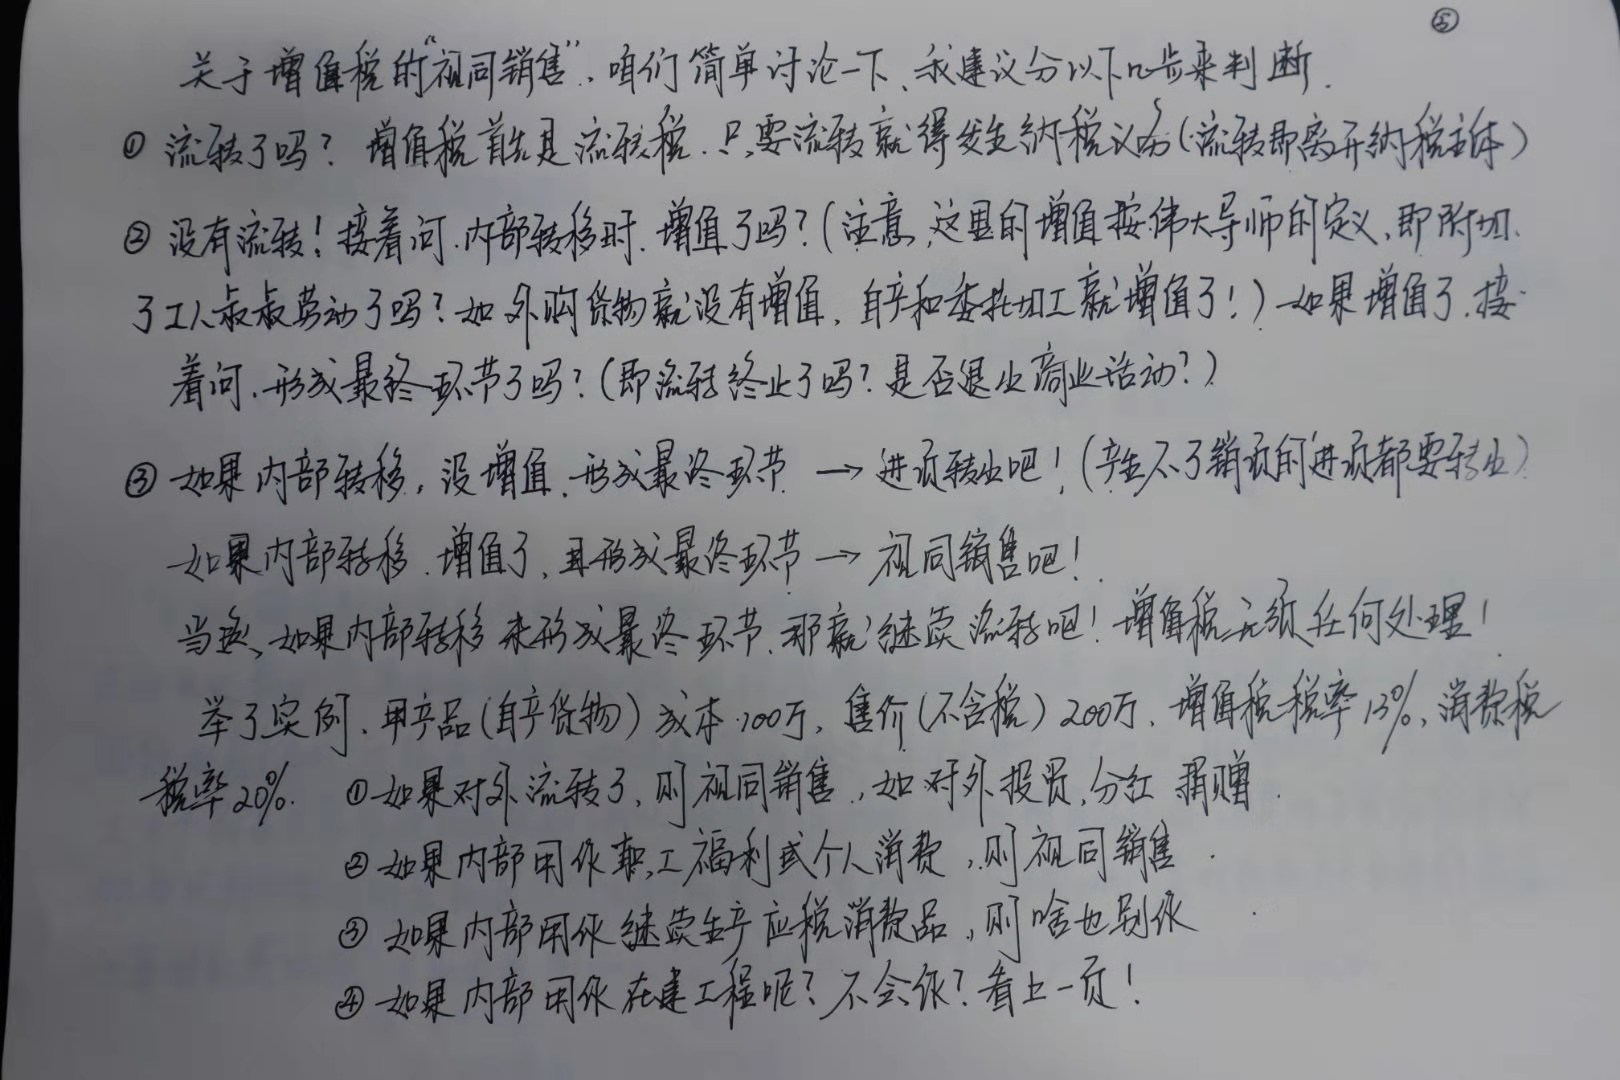 ⑤
关于增值税的"视同销售"、咱们简单讨论一下、我建议分以下几步来判断.
① 流转了吗? 增值税首先是流转税.只要流转就得发生纳税义务(流转即离开纳税主体)
② 没有流转! 接着问.内部转移时.增值了吗?(注意,这里的增值按伟大导师的定义,即附加
了工人叔叔劳动了吗? 如外购货物就没有增值,自产和委托加工就增值了!) 如果增值了.接
着问.形成最终环节了吗?(即流转终止了吗? 是否退出商业活动?)
③ 如果内部转移,没增值.形成最终环节 → 进项转出吧!(产生不了销项的进项都要转出)
如果内部转移.增值了、且形成最终环节 → 视同销售吧!
当然、如果内部转移未形成最终环节.那就继续流转吧! 增值税无须任何处理!
举个实例.甲产品(自产货物)成本100万,售价(不含税)200万.增值税税率13%,消费税
税率20%. ①如果对外流转了,则视同销售,如对外投资,分红 捐赠.
②如果内部用作职工福利或个人消费,则视同销售.
③ 如果内部用作继续生产应税消费品,则啥也别作
④ 如果内部用作在建工程呢? 不会作? 看上一页!